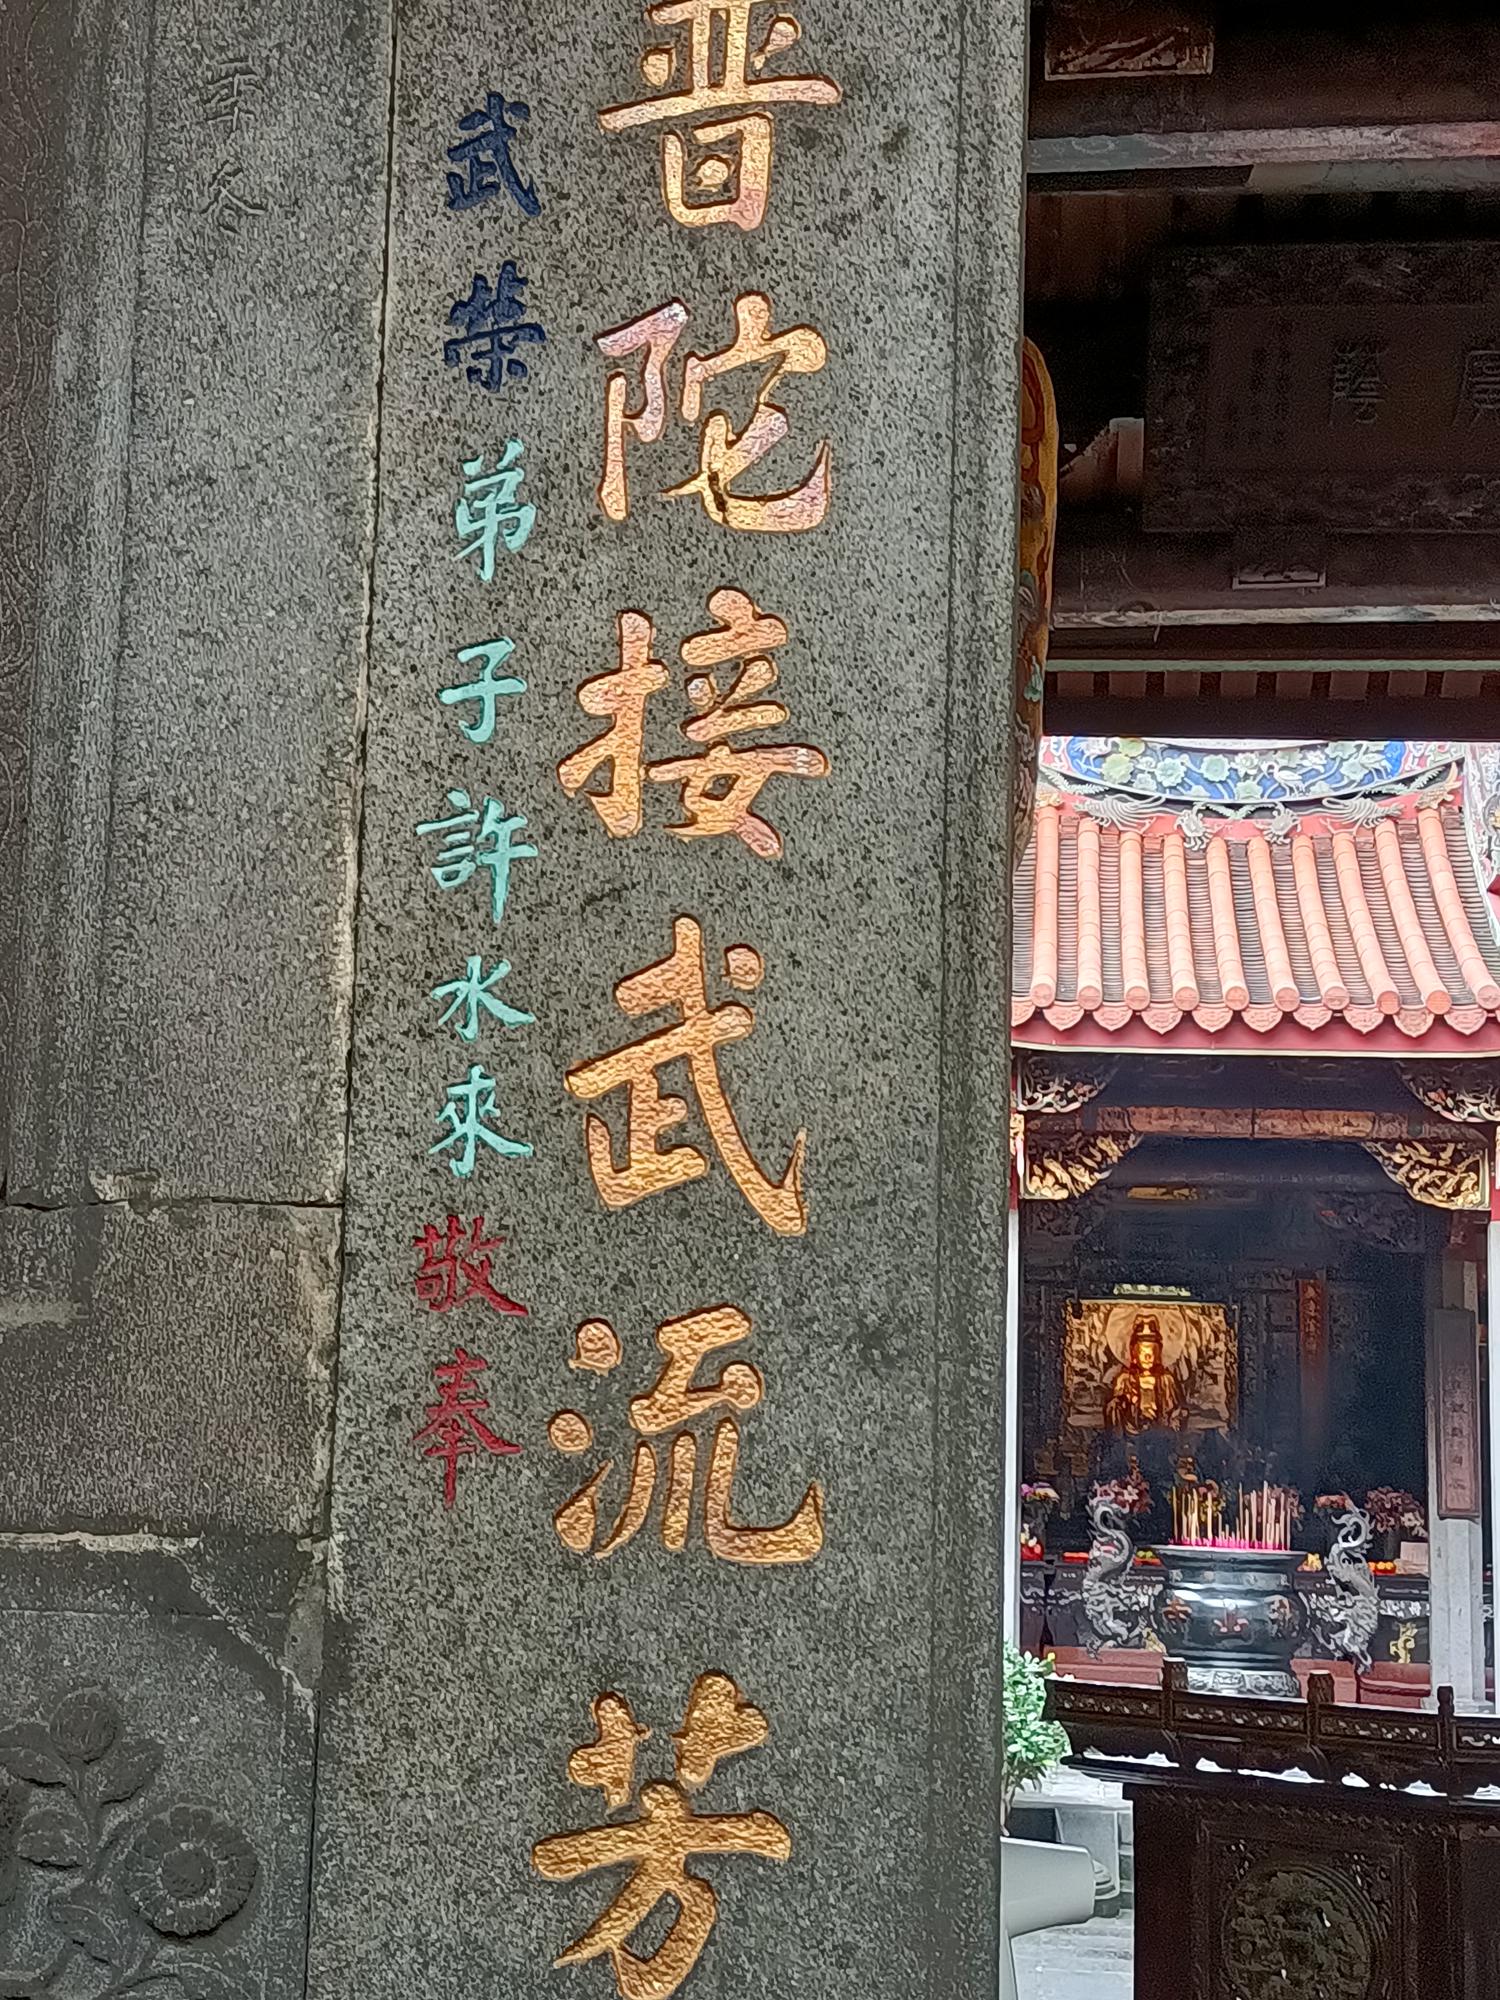 普陀接武流芳
武榮弟子許水來敬奉
年冬